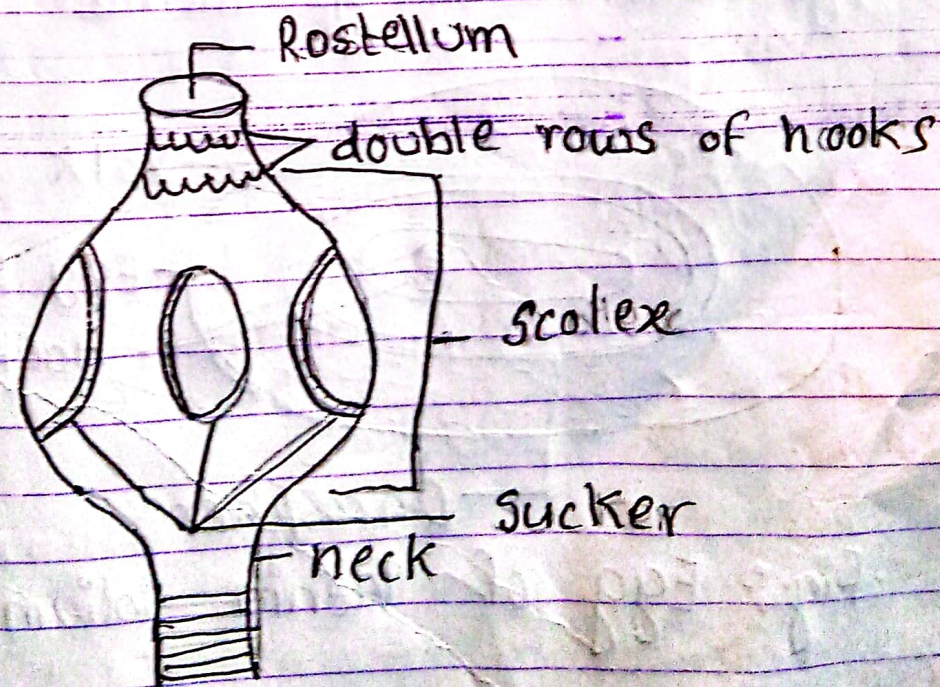 Rostellum
double rows of hooks
scolex
sucker
neck